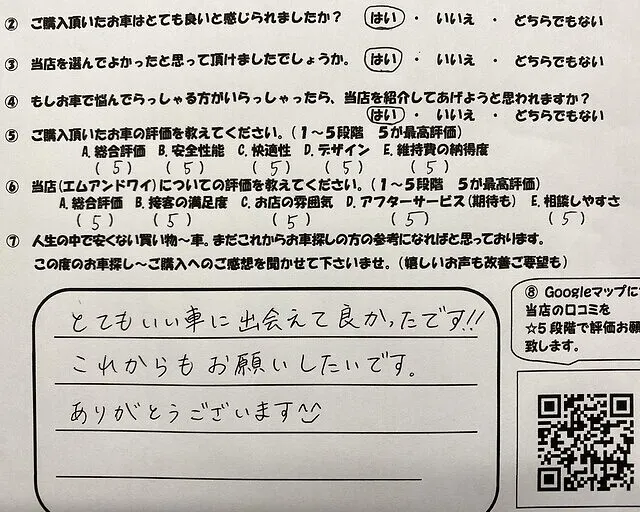 ② ご購入頂いたお車はとても良いと感じられましたか? はい ・ いいえ ・ どちらでもない
③ 当店を選んでよかったと思って頂けましたでしょうか。 はい ・ いいえ ・ どちらでもない
④ もしお車で悩んでらっしゃる方がいらっしゃったら、当店を紹介してあげようと思われますか?
はい ・ いいえ ・ どちらでもない
⑤ ご購入頂いたお車の評価を教えてください。(1~5段階 5が最高評価)
A.総合評価 B.安全性能 C.快適性 D.デザイン E.維持費の納得度
(5) (5) (5) (5) (5)
⑥ 当店(エムアンドワイ)についての評価を教えてください。(1~5段階 5が最高評価)
A.総合評価 B.接客の満足度 C.お店の雰囲気 D.アフターサービス(期待も) E.相談しやすさ
(5) (5) (5) (5) (5)
⑦ 人生の中で安くない買い物~車。まだこれからお車探しの方の参考になればと思っております。
この度のお車探し~ご購入へのご感想を聞かせて下さいませ。(嬉しいお声も改善ご要望も)
とてもいい車に出会えて良かったです!!
これからもお願いしたいです。
ありがとうございます^^
⑧ Googleマップに
当店の口コミを
☆5段階で評価お願
致します。